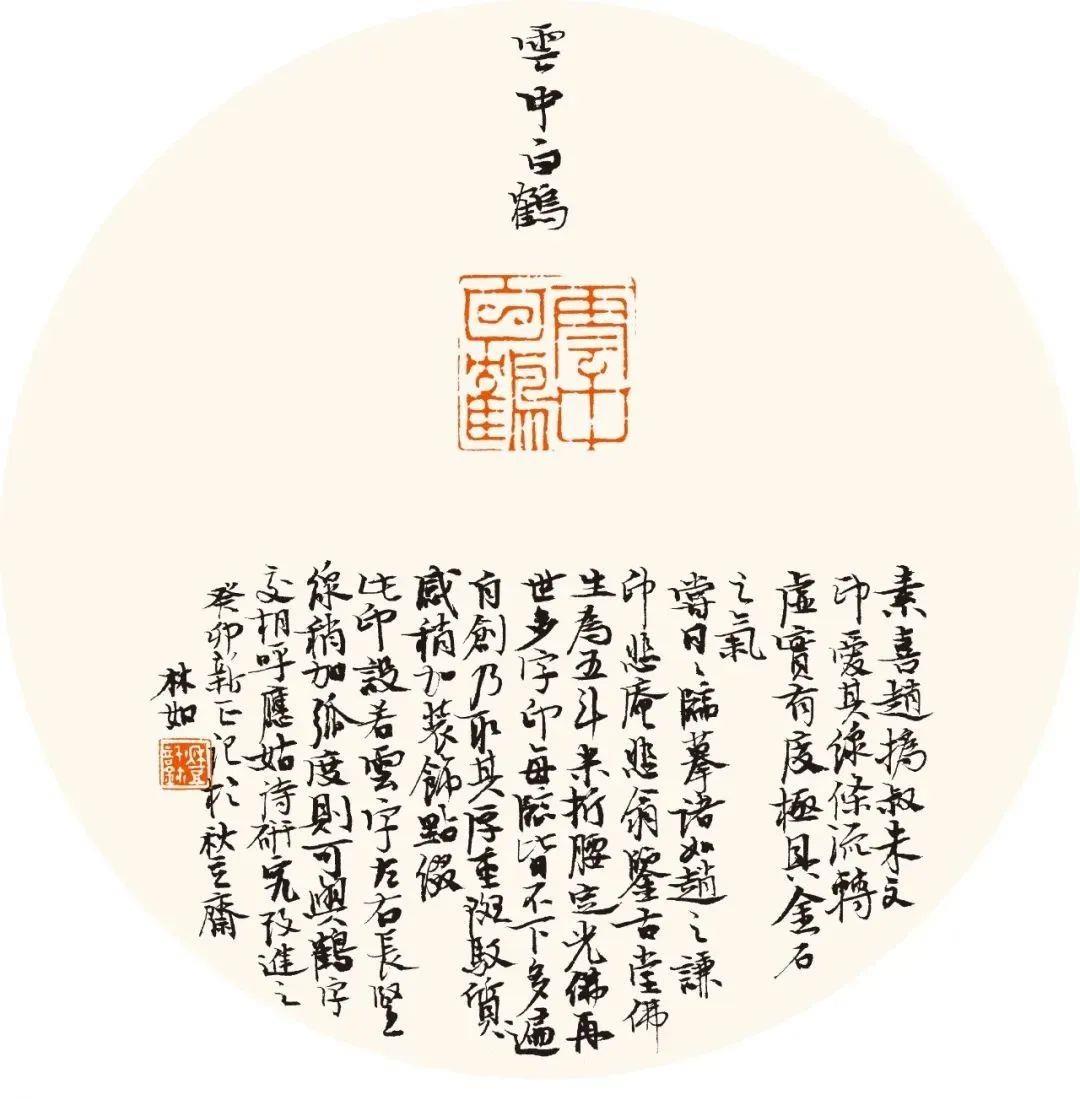 雲中白鶴
雲中白鶴
素喜趙撝叔朱文
印愛其線條流轉
虛實有度極具金石
之氣
嘗日〻臨摹諸如趙之謙
印悲庵悲翁鑒古堂佛
生為五斗米折腰定光佛再
世多字印每臨皆不下多遍
自創乃取其厚重斑駁質
感稍加裝飾點綴
此印設若雲字左右長豎
線稍加弧度則可與鶴字
交相呼應姑待研究改進之
癸卯新正記於秋豆齋
林如